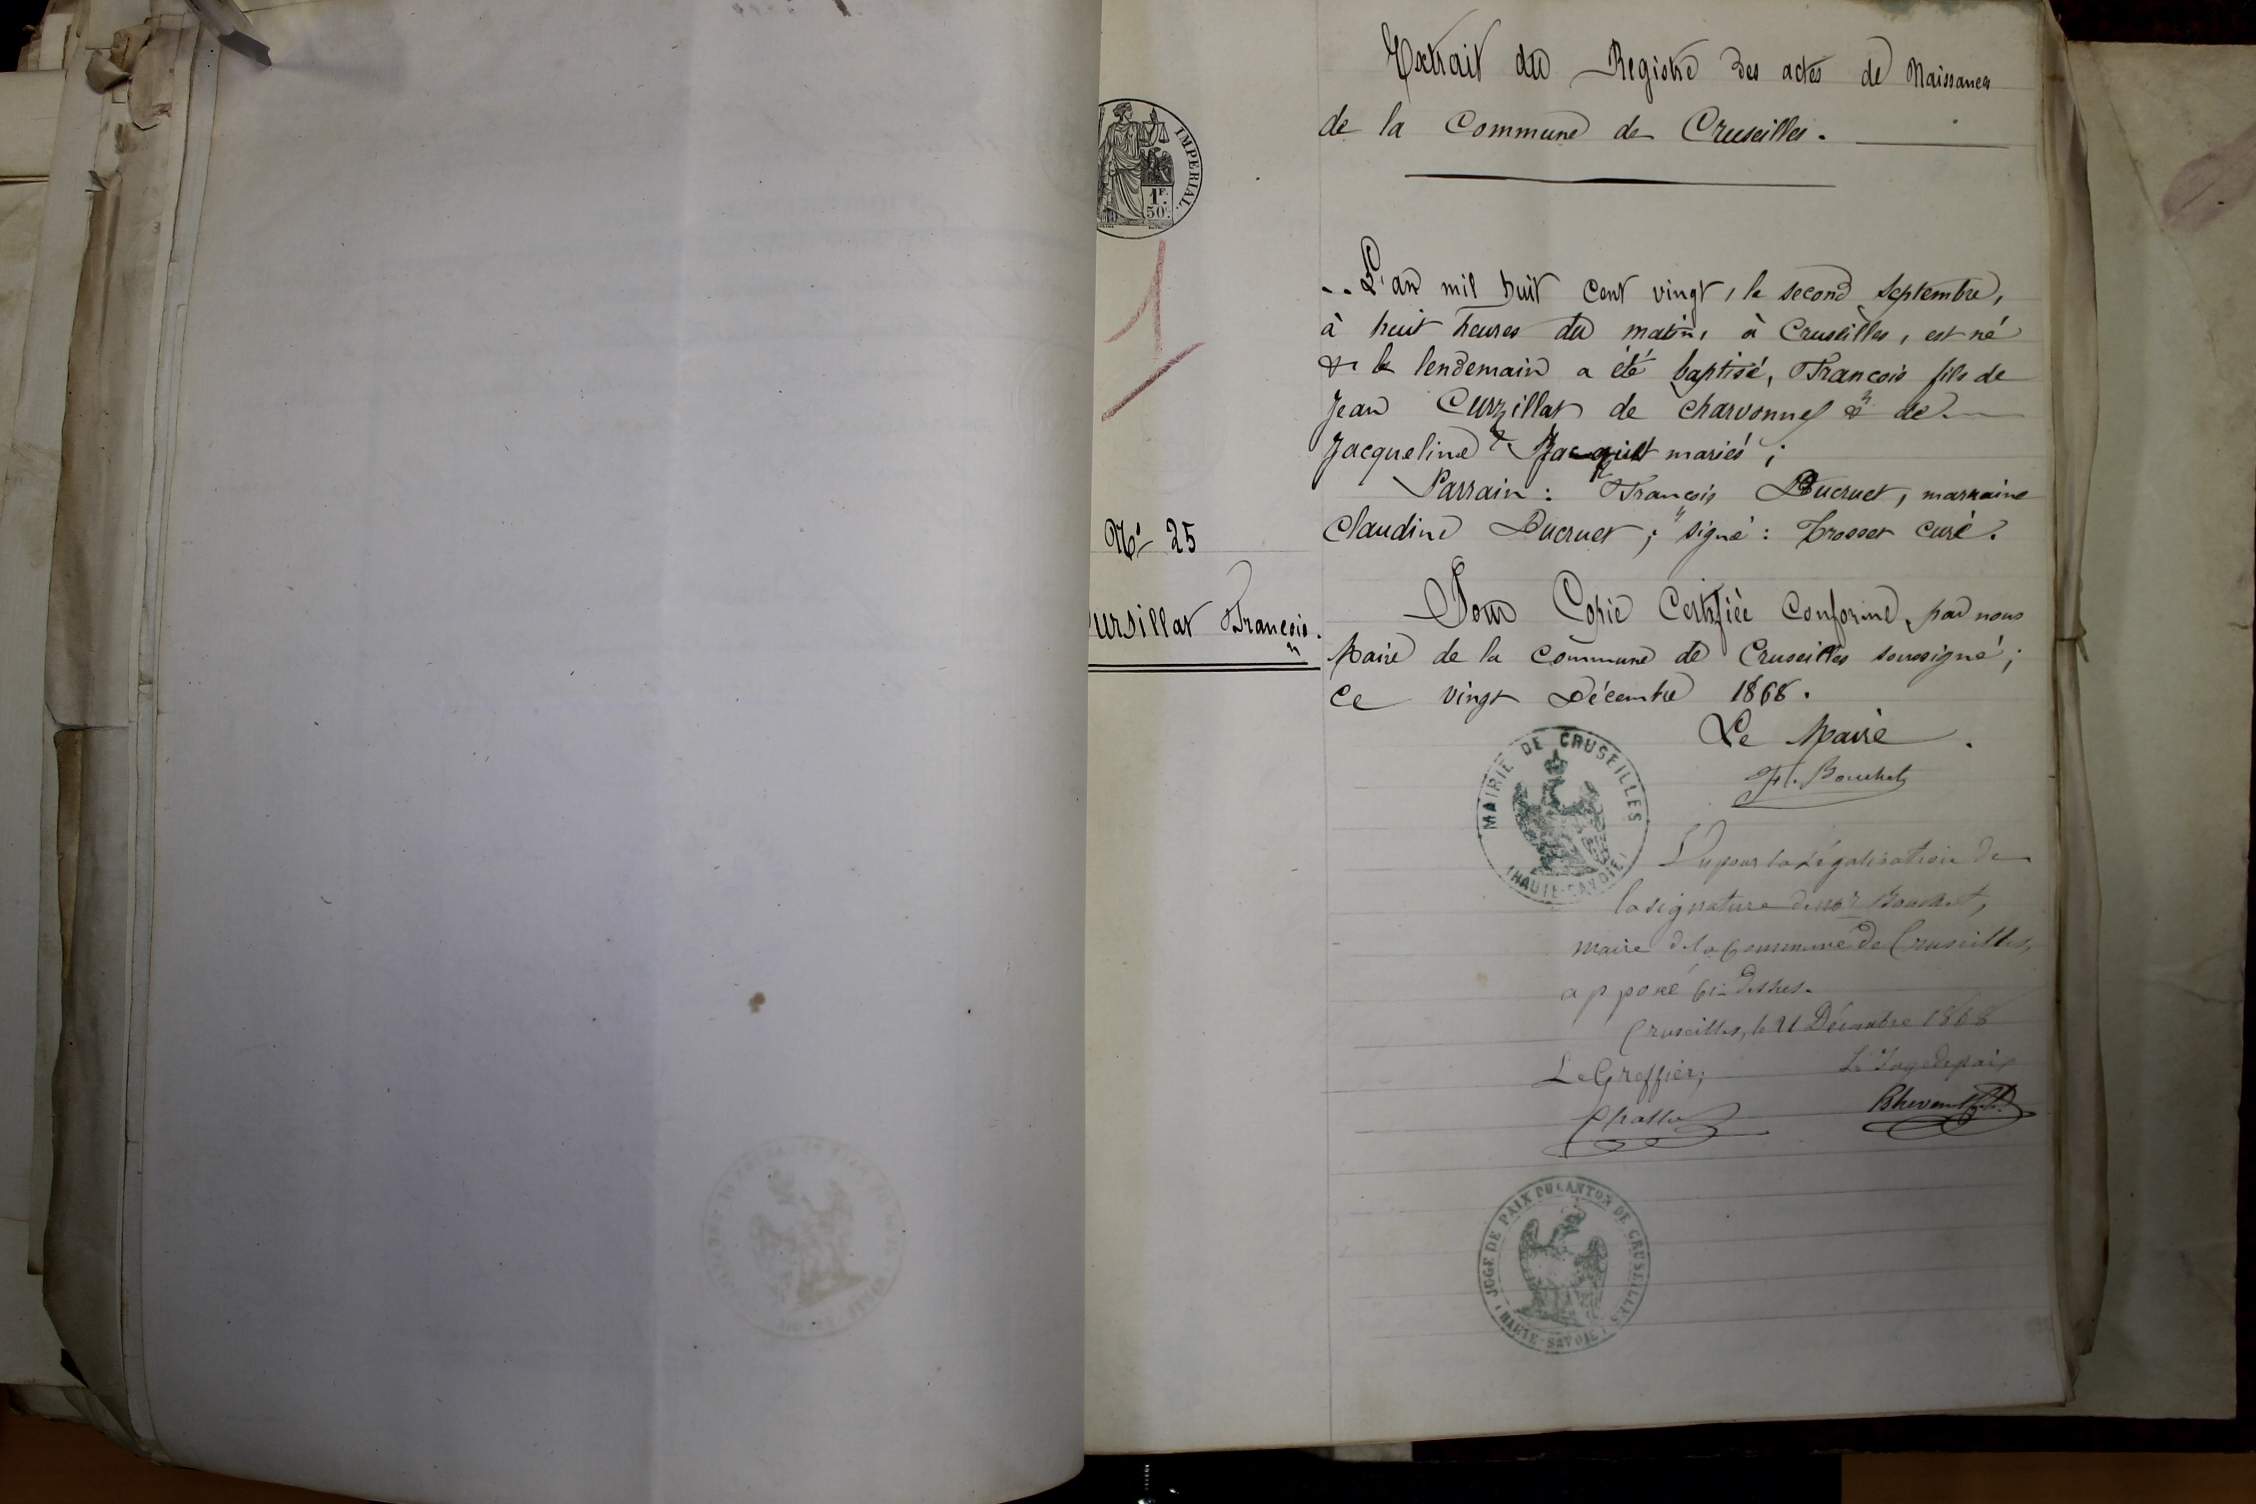 Extrait du Registre des actes de Naissances
de la Commune de Cruseilles.
IMPERIAL.
1F.
50c.
1
L'an mil huit cent vingt, le second Septembre,
à huit heures du matin, à Cruseilles, est né
& le lendemain a été baptisé, François fils de
Jean Curzillat de Charvonnex & de
Jacqueline Jacquet mariés;
Parrain : François Ducruet, marraine
Claudine Ducruet; signé : Trosset curé.
N° 25
ursillat François.
Pour Copie Certifiée Conforme, par nous
Maire de la Commune de Cruseilles soussigné;
Ce vingt Décembre 1868.
Le Maire.
Bouchet
MAIRIE DE CRUSEILLES
(HAUTE-SAVOIE)
Vu pour la légalisation de
la signature de Mr Bouchet,
maire de la Commune de Cruseilles,
apposé ci-dessus.
Cruseilles, le 21 Décembre 1868
Le Greffier; Le Juge de paix
JUGE DE PAIX DU CANTON DE CRUSEILLES
(HAUTE-SAVOIE)